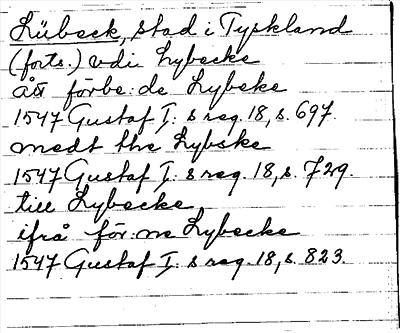 Lübeck, stad i Tyskland
(forts.) vdi Lybecke
att förbe:de Lybeke
1547 Gustaf I:s reg. 18, s. 697.
medt the Lybske
1547 Gustaf I:s reg. 18, s. 729.
till Lybecke,
ifrå för:ne Lybecke
1547 Gustaf I:s reg. 18, s. 823.